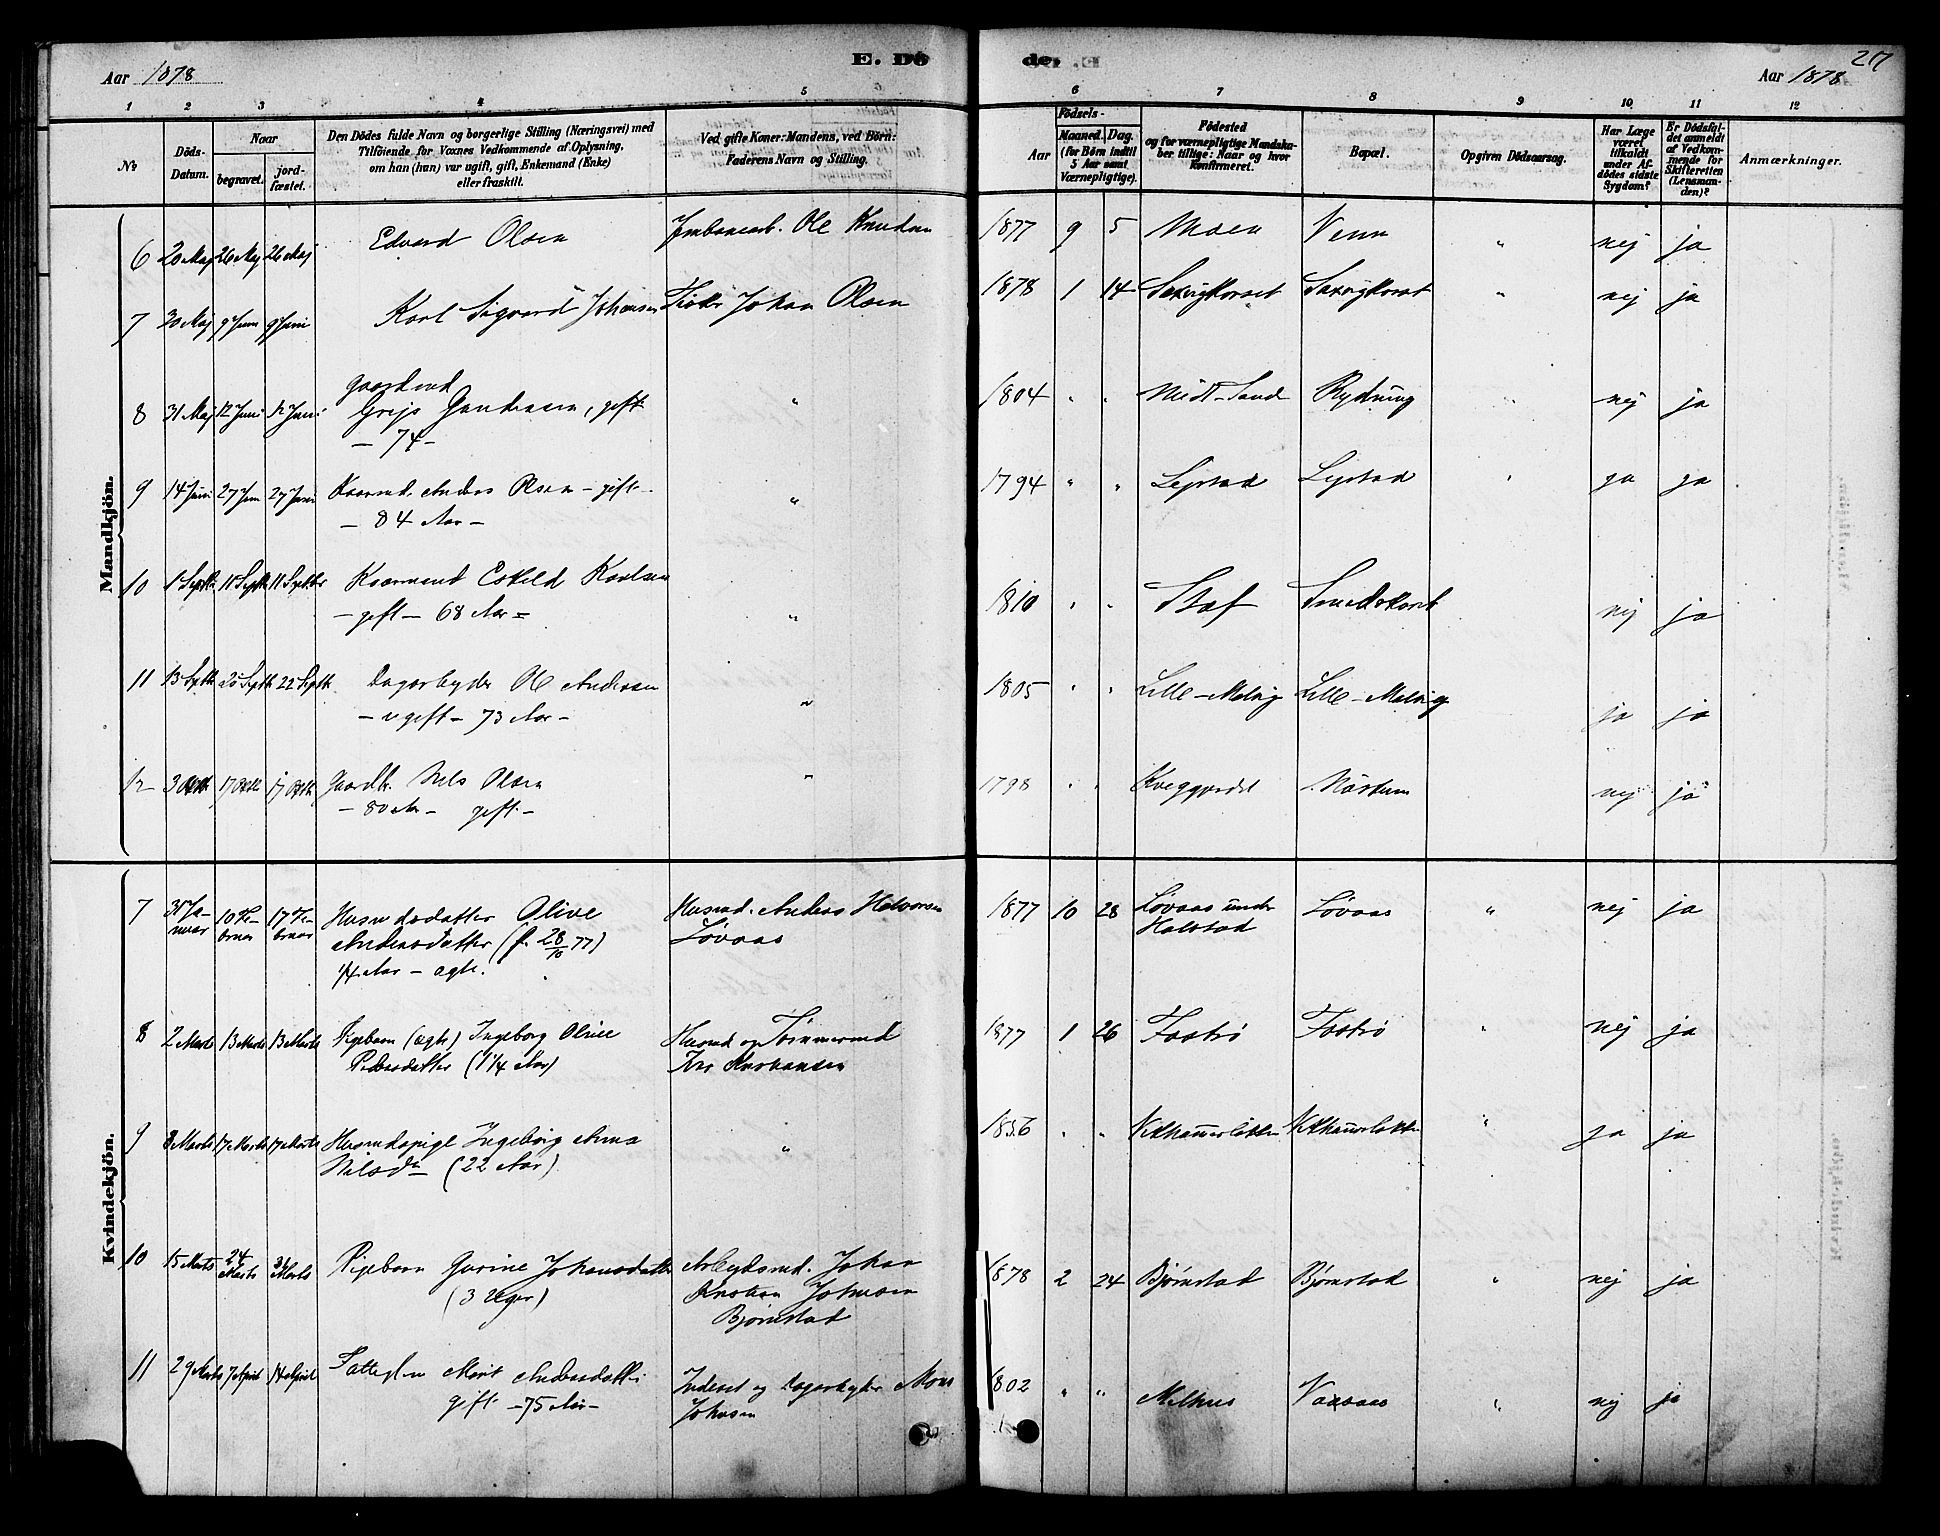 Aar 1878
E. Dö
de. E.
217
Aar 1878
1 2 3 4 5 6 7 8 9 10 11 12
No
Döds-Datum.
Naar
begravet.
jord-fæstet.
Den Dödes fulde Navn og borgerlige Stilling (Næringsvei) med
Tilföiende for Voxnes Vedkommende af Oplysning,
om han (hun) var ugift, gift, Enkemand (Enke)
eller fraskilt.
Ved gifte Koner: Mandens, ved Börn:
Faderens Navn og Stilling.
Födsels-
Aar
Maaned. Dag.
(for Börn indtil
5 Aar samt
Værnepligtige).
Födested
og for værnepligtige Mandska-
ber tillige: Naar og hvor
Konfirmeret.
Bopæl.
Opgiven Dödsaarsag.
Har Læge
været
tilkaldt
under Af-
dödes sidste
Sygdom?
Er Dödsfal-
det anmeldt
af Vedkom-
mende for
Skifteretten
(Lensman-
den)?
Anmærkninger.
Mandkjön.
6 20 Maj 26 Maj 26 Maj Edvard Olsen Jernbanearb. Ole Knudsen 1877 9 5 Moen Venn " nej ja
7 30 Maj 9 Juni 9 Juni Karl Sigvard Johansen Johan Olsen 1878 1 14 Saxvigkorset Saxvigkorset " nej ja
8 31 Maj 12 Juni 12 Juni Gaardmd
Gundersen, gift " 1804 " " Midt-Sand nej ja
- 74 -
9 14 Juni 27 Juni 27 Juni Kaarmd. Anders Olsen - gift - " 1794 " " Leistad Leistad " ja ja
- 84 Aar -
10 1 Septb 11 Septb 11 Septbr Kaarmand Eskild Karlsen " 1810 " " Stav nej ja
- gift - 68 Aar -
11 13 Septb Septb 22 Septb Dagarbejder Ole Andersen " 1805 " " Lille-Malvig Lille-Malvig ja ja
- ugift - 73 Aar -
12 3 Oktb 17 Oktb 17 Oktb Gaardbr. Nils Olsen " 1798 " " nej ja
- 80 Aar - gift -
Kvindekjön.
7 31 Ja-nuar 10 Fe-bruar 17 Fe-bruar Husmdsdatter Olive Husmd. Anders Halvorsen 1877 10 28 Løvaas under Løvaas " nej ja
Andersdatter (f. 28/10 77) Løvaas Halstad
1/4 Aar - ægte.
8 2 Marts 13 Marts 13 Marts Pigebarn (ægte) Ingeborg Oline Husmd og Tømmermd 1877 1 26 Fostrø Fostrø " nej ja
Pedersdatter (1 1/4 Aar)
9 8 Marts 17 Marts 17 Marts Husmdspige Ingeborg Anna " 1856 " " " ja ja
Nilsdr (22 Aar)
10 15 Marts 24 Marts Marts Pigebarn Gurine Johansdatter Arbejdsmd. Johan 1878 2 24 Bjørnstad Bjørnstad " nej ja
(3 Uger) Kristian Johnsen
Bjørnstad
11 29 Marts 7 April 14 April Marit Andersdatter Inderst og Dagarbejder Mons 1802 " " Melhus " nej ja
gift - 75 Aar - Johnsen